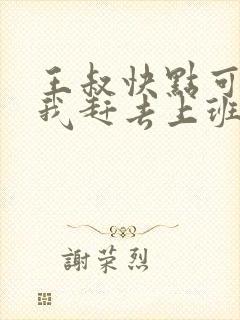 王叔快點可
我赶去上班
謝荣烈